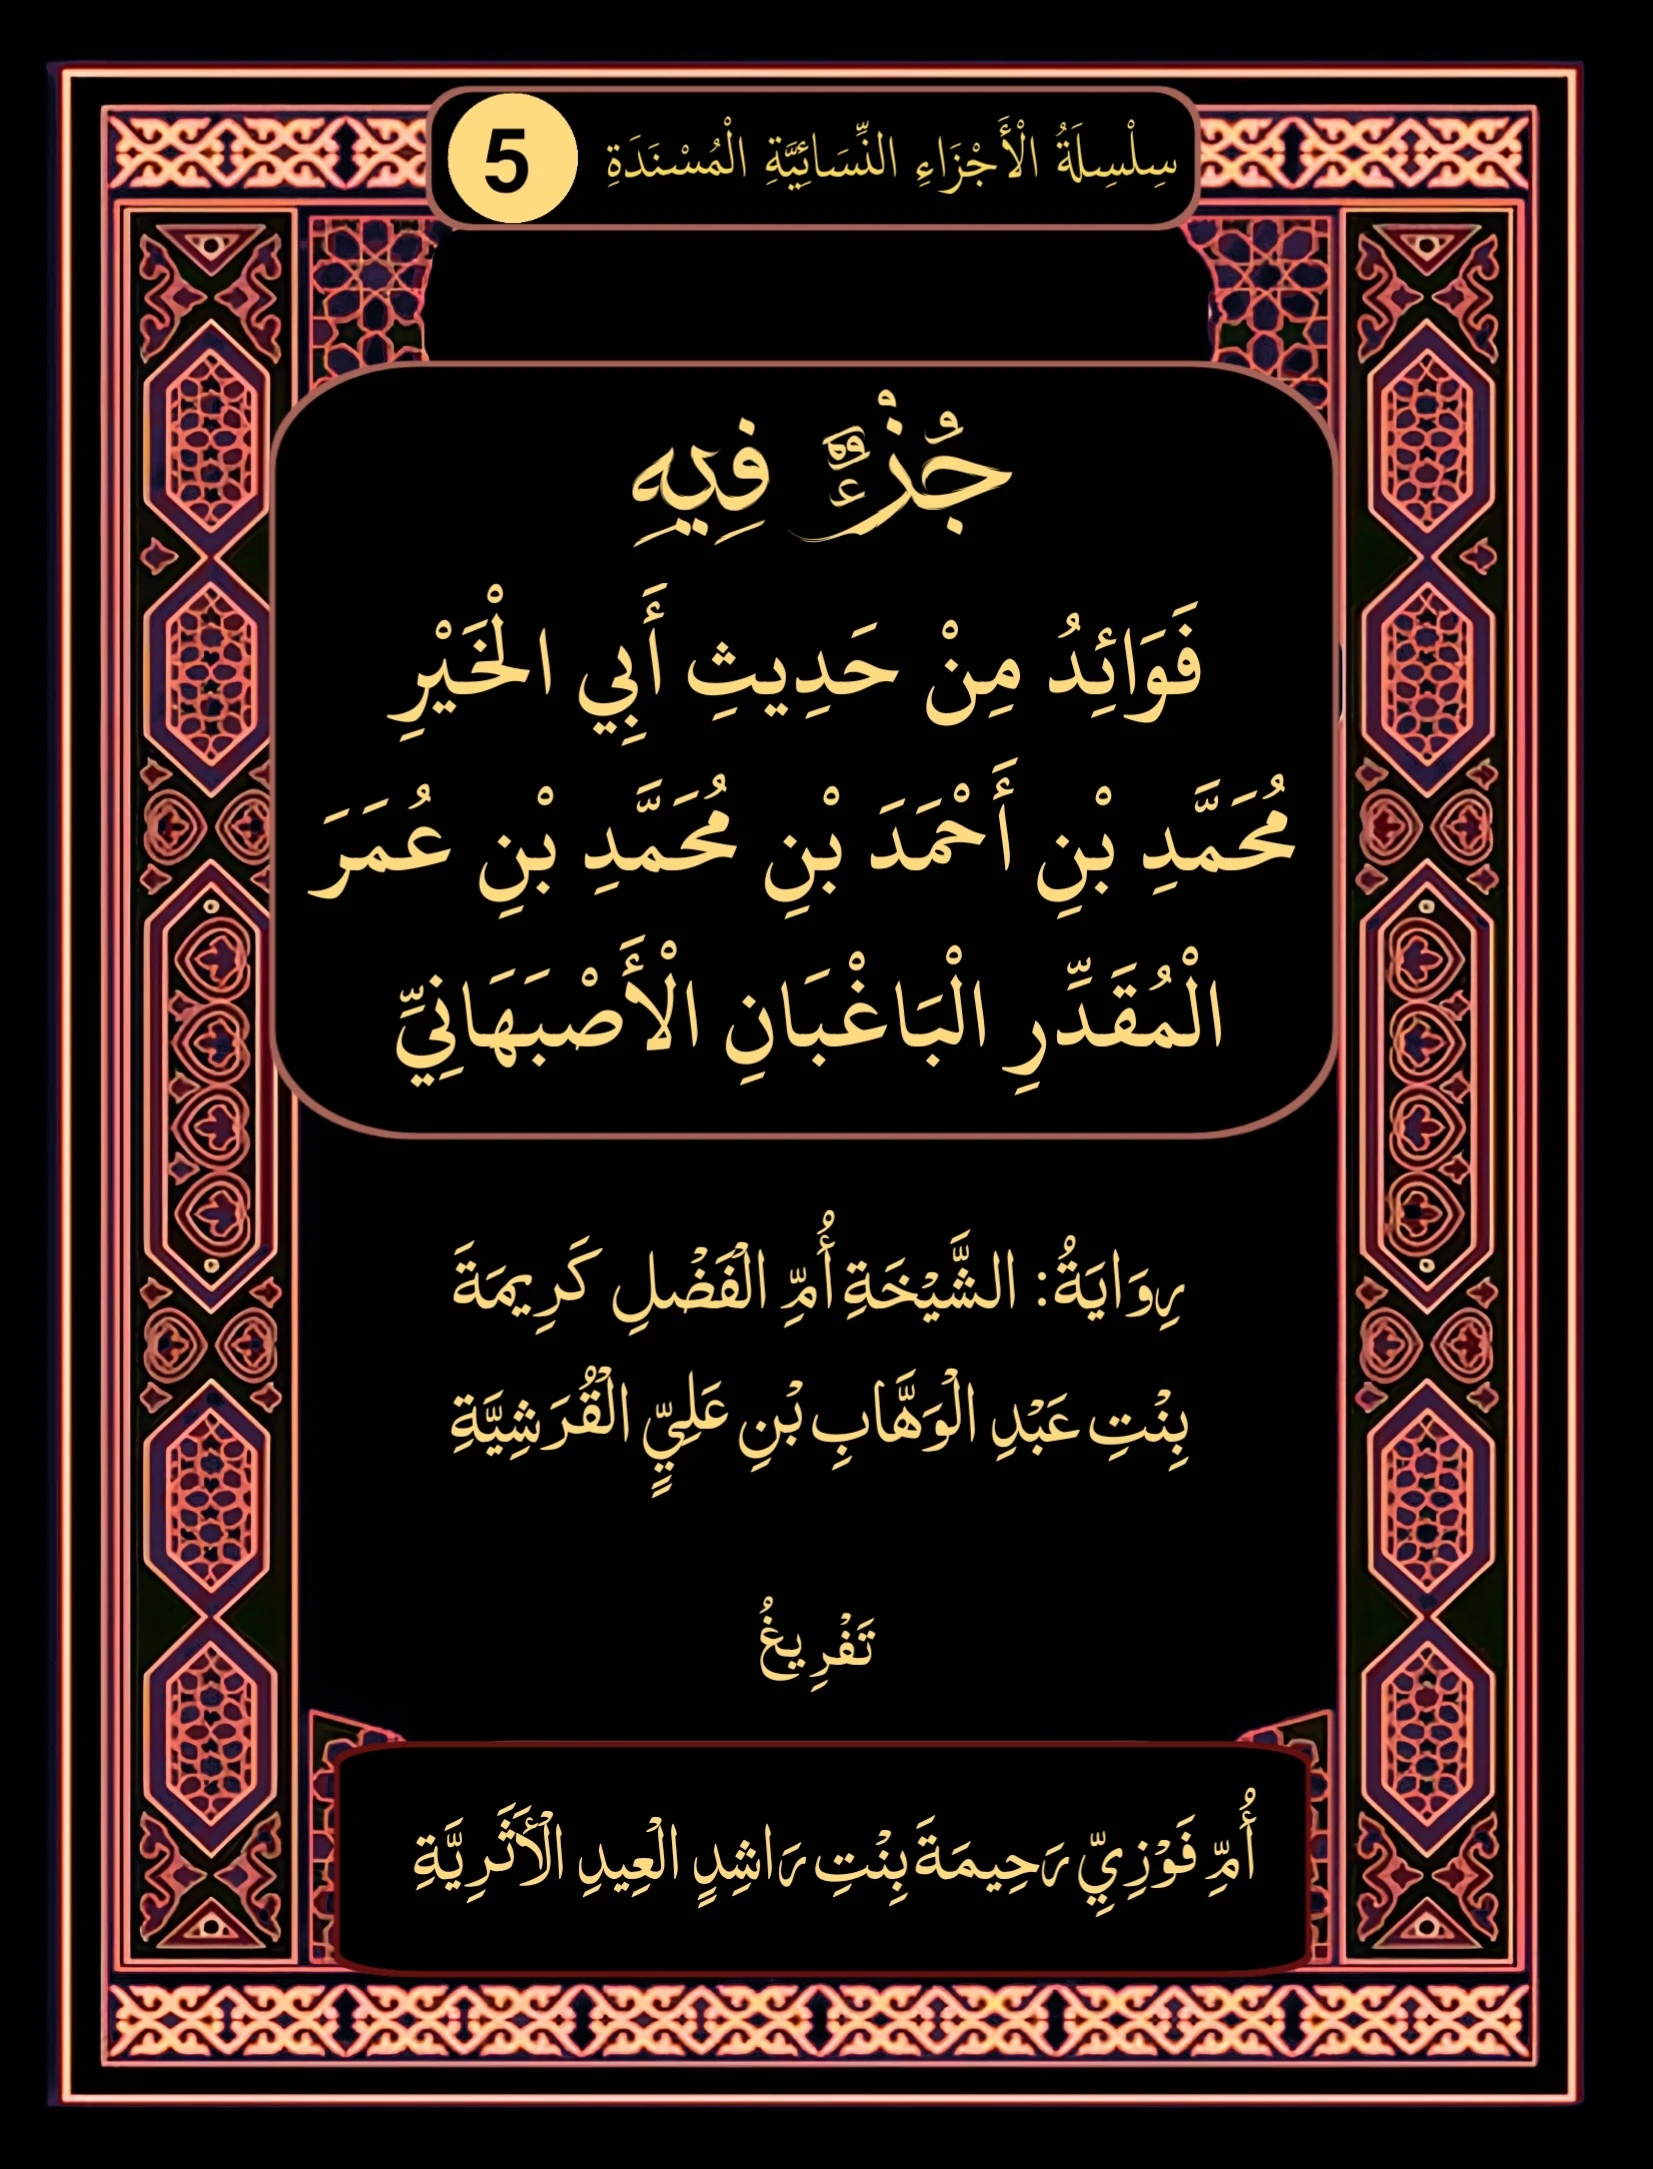 سِلْسِلَةُ الْأَجْزَاءِ النِّسَائِيَّةِ الْمُسْنَدَةِ 5
جُزْءٌ فِيهِ
فَوَائِدُ مِنْ حَدِيثِ أَبِي الْخَيْرِ
مُحَمَّدِ بْنِ أَحْمَدَ بْنِ مُحَمَّدِ بْنِ عُمَرَ
الْمُقَدِّرِ الْبَاغْبَانِ الْأَصْبَهَانِيِّ
رِوَايَةُ: الشَّيْخَةِ أُمِّ الْفَضْلِ كَرِيمَةَ
بِنْتِ عَبْدِ الْوَهَّابِ بْنِ عَلِيٍّ الْقُرَشِيَّةِ
تَفْرِيغُ
أُمِّ فَوْزِيِّ رَحِيمَةَ بِنْتِ رَاشِدٍ الْعِيدِ الْأَثَرِيَّةِ